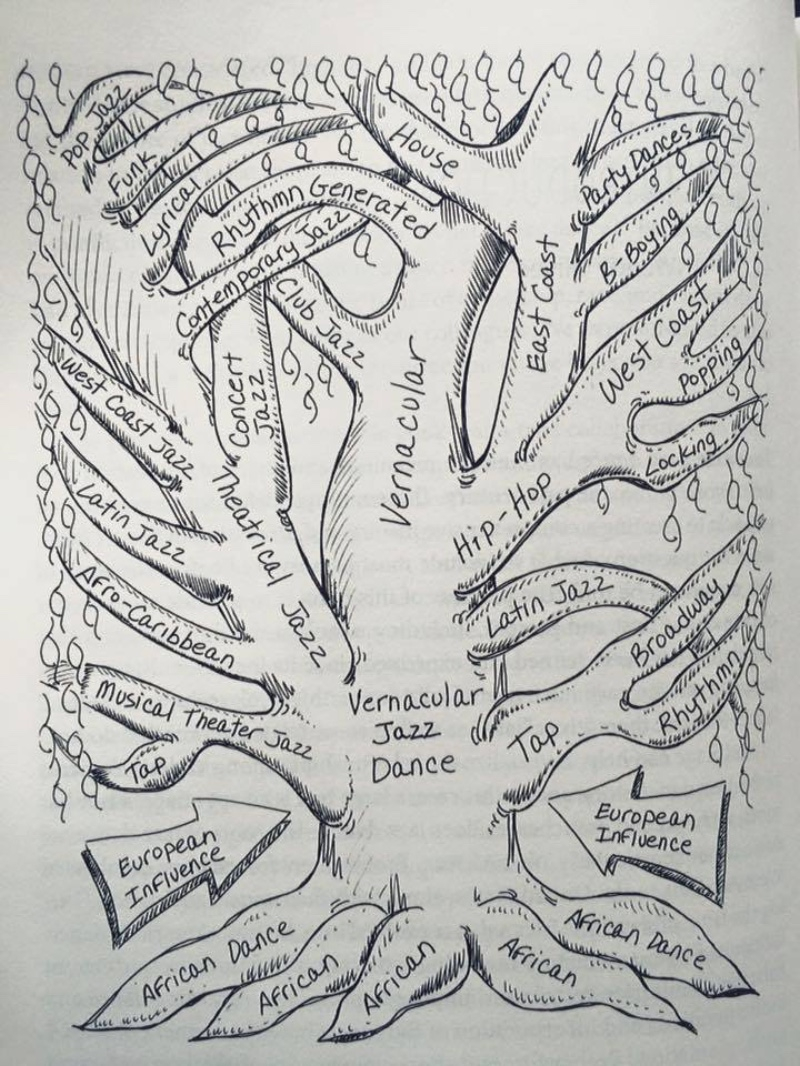 Pop Jazz
Funk
Lyrical
Rhythmn Generated
Contemporary Jazz
Club Jazz
Concert
Jazz
Theatrical Jazz
House
Vernacular
East Coast
Party Dances
B-Boying
West Coast
Popping
Locking
Hip-Hop
West Coast Jazz
Latin Jazz
Afro-Caribbean
Musical Theater Jazz
Tap
Latin Jazz
Broadway
Rhythmn
Tap
Vernacular
Jazz
Dance
European
Influence
European
Influence
African Dance
African
African
African
African Dance